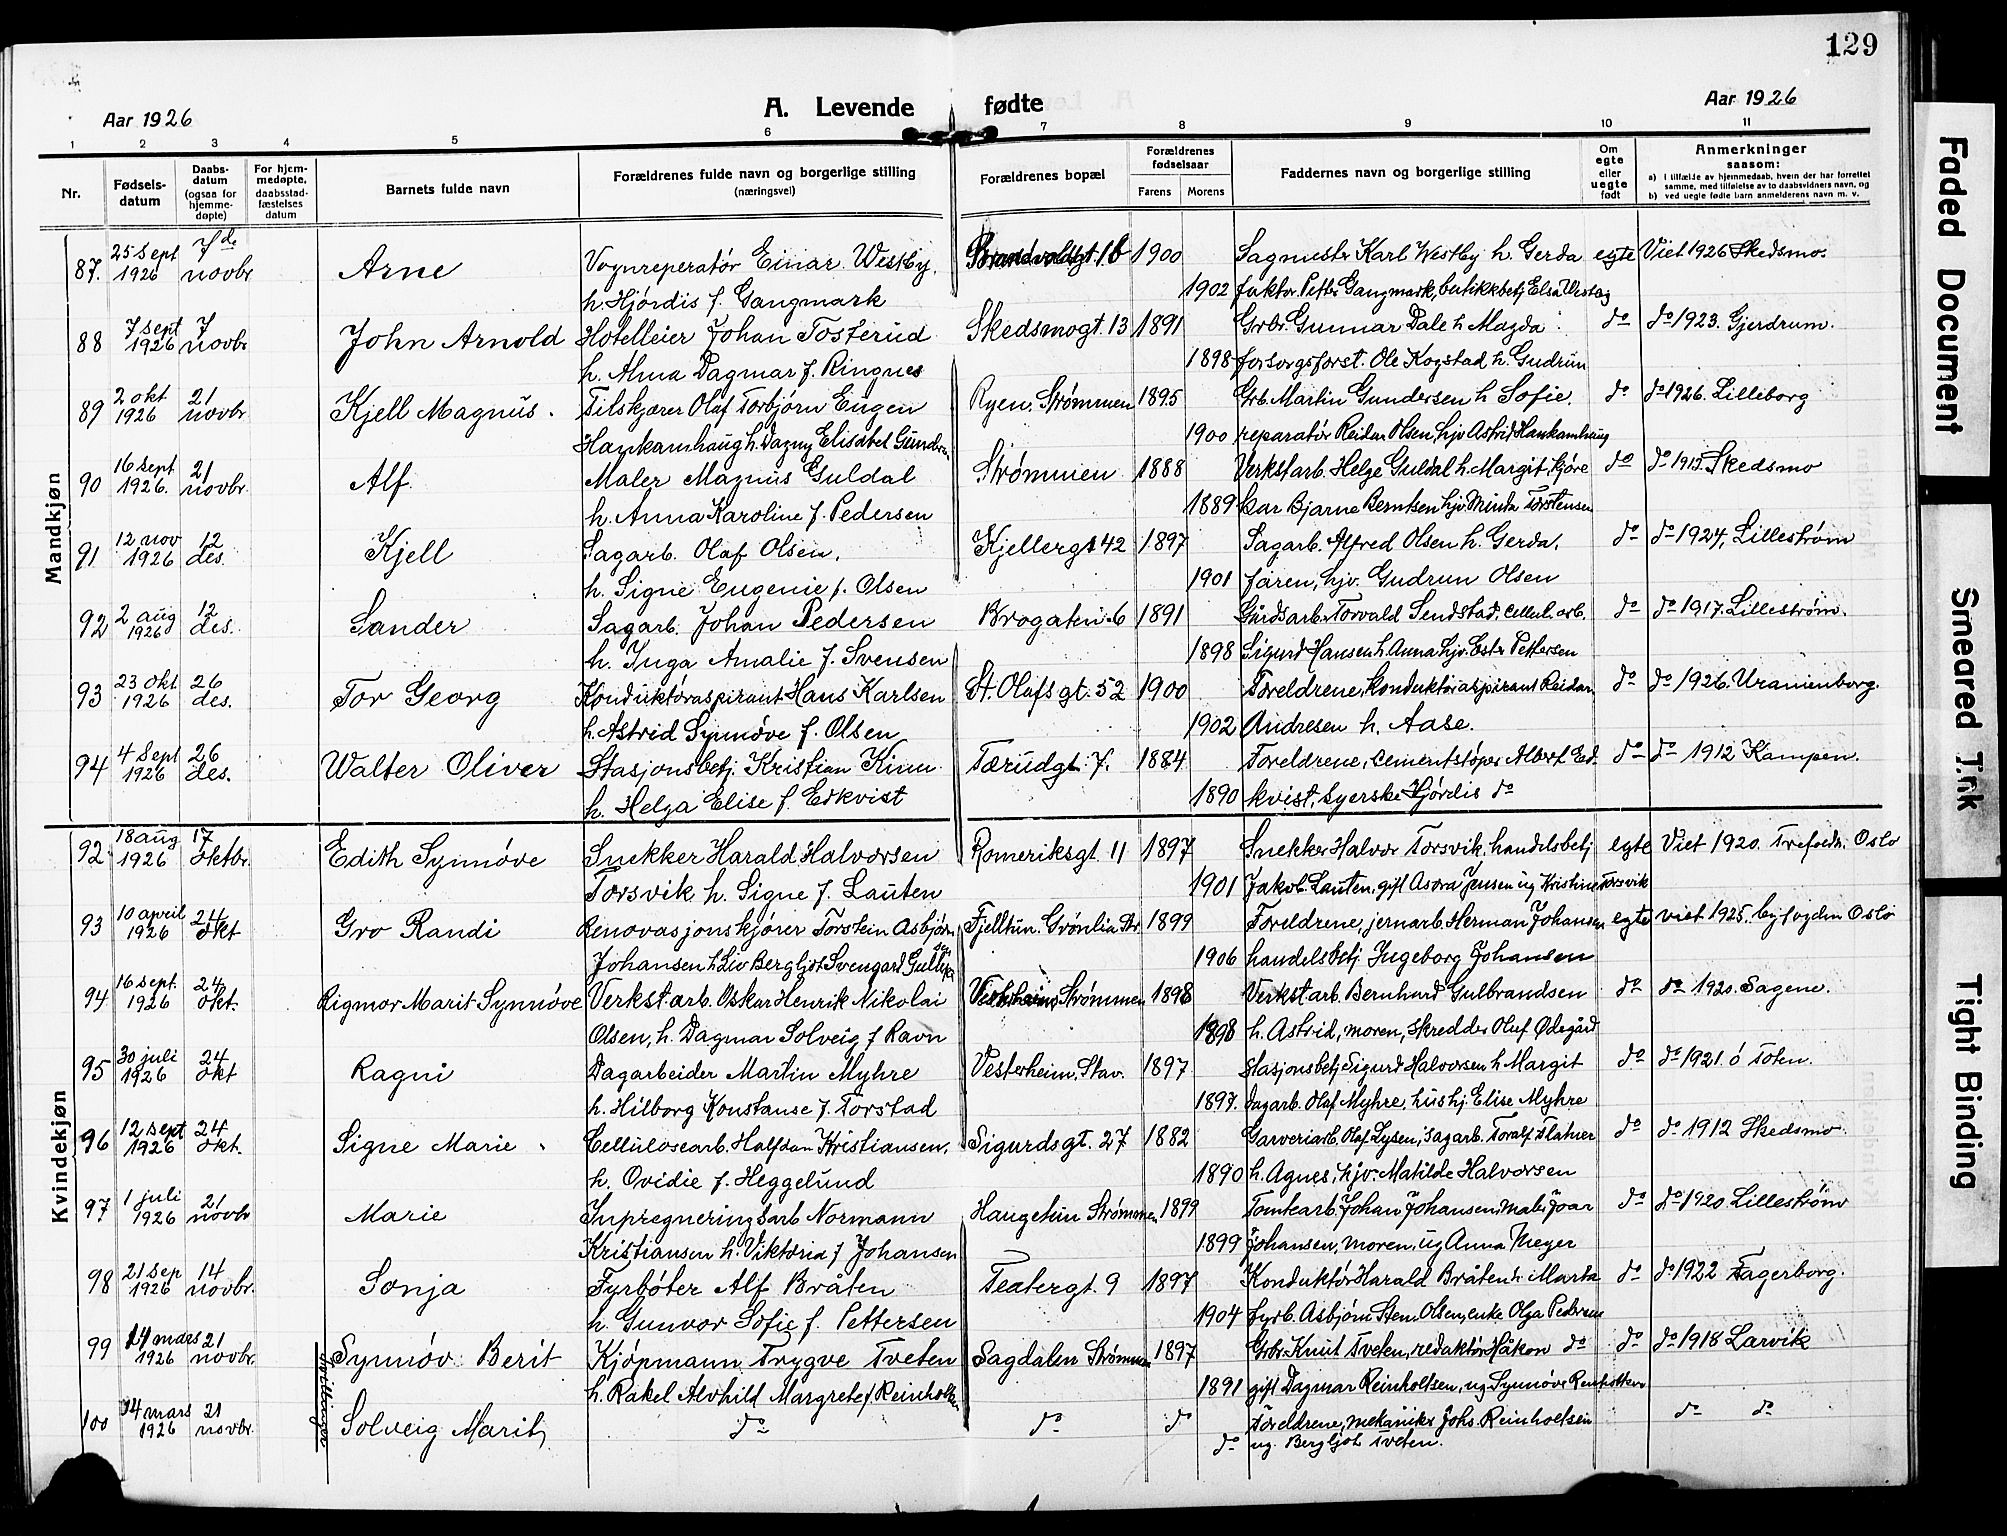 129
Aar 1926 A. Levende fødte Aar 1926
1 2 3 4 5 6 7 8 9 10 11
Nr. Fødsels-datum Daabs-datum (ogsaa for hjemme-døpte) For hjem-medøpte, daabsstad-fæstelses datum Barnets fulde navn Forældrenes fulde navn og borgerlige stilling (næringsvei) Forældrenes bopæl Forældrenes fødselsaar Farens Morens Faddernes navn og borgerlige stilling Om egte eller uegte født Anmerkninger saasom:
a) I tilfælde av hjemmedaab, hvem der har forrettet samme, med tilføielse av to daabsvidners navn, og
b) ved uegte fødte barn anmelderens navn m. v.
Mandkjøn
87. 25 Sept 1926 7de novbr Arne Vognreperatør Einar Westby, Brandvoldgt. 1b 1900 Sagmester Karl Westby h. Gerda egte Viet 1926 Skedsmo.
h. Hjørdis f. Gangmark 1902 faktor Petter Gangmark, butikkbetj Elsa Westby
88 7 sept 1926 7 novbr John Arnold Hotelleier Johan Tosterud Skedsmogt. 13 1891 Grbr. Gunnar Dale h Magda do do 1923. Gjerdrum.
h. Alma Dagmar f. Ringnes 1898 forsorgsforst. Ole Kogstad h. Gudrun
89 2 okt 1926 21 novbr Kjell Magnus. Filskjærer Olaf Torbjørn Eugen Ryen. Strømmen 1895 Grb. Martin Gundersen h Sofie. do do 1926. Lilleborg
Haukamhaug h. Dagny Elisabet Gundersen 1900 reparatør Reidar Olsen, hjv Astrid Haukamhaug
90 16 sept 1926. 21 novbr Alf Maler Magnus Guldal Strømmen 1888 Verkstarb. Helge Guldal h. Margit, kjøre do do 1913 Skedsmo
h. Anna Karoline f. Pedersen 1889 kar Bjarne Berntsen hjv. Minda Torstensen
91 12 nov 1926 12 des. Kjell Sagarb. Olaf Olsen, Kjellergt 42 1897 Sagarb. Alfred Olsen h. Gerda, do do 1924, Lillestrøm
h. Signe Eugenie f. Olsen 1901 faren, hjv. Gudrun Olsen
92 2 aug 1926 12 des. Sander Sagarb. Johan Pedersen Brogaten 6 1891 Gårdsarb. Torvald Sendstad, cellul. arb. do do 1917. Lillestrøm.
h. Inga Amalie f. Svensen 1898 Sigurd Hansen h. Anna hjv. Ester Pettersen
93 23 okt 1926 26 des. Tor Georg Konduktøraspirant Hans Karlsen St. Olafsgt. 52 1900 Foreldrene, konduktøraspirant Reidar do do 1926. Uranienborg.
h. Astrid Synnøve f. Olsen 1902 Andresen h. Aase.
94 4 Sept 1926 26 des. Walter Oliver Stasjonsbetj. Kristian Kinn Tærudgt. 7. 1884 Foreldrene, cementstøper Albert Ed- do do 1912 Kampen.
h. Helga Elise f. Edkvist 1890 kvist, syerske Hjørdis do
Kvindekjøn
92. 18 aug 1926 17 oktbr. Edith Synnøve Snekker Harald Halvorsen Romeriksgt. 11 1897 Snekker Halvor Torsvik, handelsbetj egte Viet 1920. Trefoldh. Oslo
Torsvik h. Signe f. Lauten 1901 Jakob Lauten, gift Asora Jensen ug Kristine Torsvik
93 10 april 1926 24 okt Gro Randi Renovasjonskjører Torstein Asbjørn Fjelltun. Grønlia Str 1899 Foreldrene, jernarb. Herman Johansen egte viet 1925. byfogden Oslo
Johansen h Liv Bergljot Svengard 1906 handelsbetj. Ingeborg Johansen
94 16 sept. 1926 24 okt. Rigmor Marit Synnøve Verkstarb. Oskar Henrik Nikolai Strømmen 1898 Verkstarb. Bernhard Gulbrandsen do do 1920. Sagene.
Olsen, h. Dagmar Solveig f Ravn 1898 h. Astrid, moren, skredder Oluf Ødegård
95 30 juli 1926 24 okt Ragni Dagarbeider Martin Myhre Vesterheim. Stav. 1897 Stasjonsbetj Sigurd Halvorsen h Margit do do 1921. Ø Toten.
h. Hilborg Konstanse f. Torstad 1897. Dagarb. Olaf Myhre, hushj. Elise Myhre
96 12 sept 1926 24 okt. Signe Marie Cellulosearb. Halfdan Kristiansen, Sigurdsgt. 27 1882 Garveriarb. Olaf Lysen, sagarb. Toralf Flatner do do 1912 Skedsmo.
h. Ovidie f. Heggelund 1890 h. Agnes, hjv. Matilde Halvorsen
97 1 juli 1926 21 novbr Marie Inpregneringsarb Normann Haugetun Strømmen 1899 Tomtearb. Johan Johansen, maler Joar do do 1920. Lillestrøm
Kristiansen h. Viktoria f Johansen 1899 Johansen, moren, ug Anna Meyer
98 21 sep 1926 14 novbr. Sonja Fyrbøter Alf Bråten Teatergt. 9 1897 Konduktør Harald Bråten h. Marta do do 1922 Fagerborg.
h. Gunvor Sofie f. Pettersen 1904 fyrb. Asbjørn Sten Olsen, enke Olga Pedersen
99 14 mars 1926 21 novbr. tvillinger Synnøv Berit Kjøpmann Trygve Tveten Sagdalen Strømmen 1897 Grbr. Knut Tveten, redaktør Håkon do do do 1918 Larvik
h. Rakel Alvhild Margrete f. Reinholtsen 1891 gift Dagmar Reinholtsen, ug Synnøve Reinholtsen
100 14 mars 1926 21 novbr. Solveig Marit do do do Foreldrene, mekaniker Johs. Reinholtsen do do
do ug. Bergljot Tveten.
Faded Document
Smeared Ink
Tight Binding